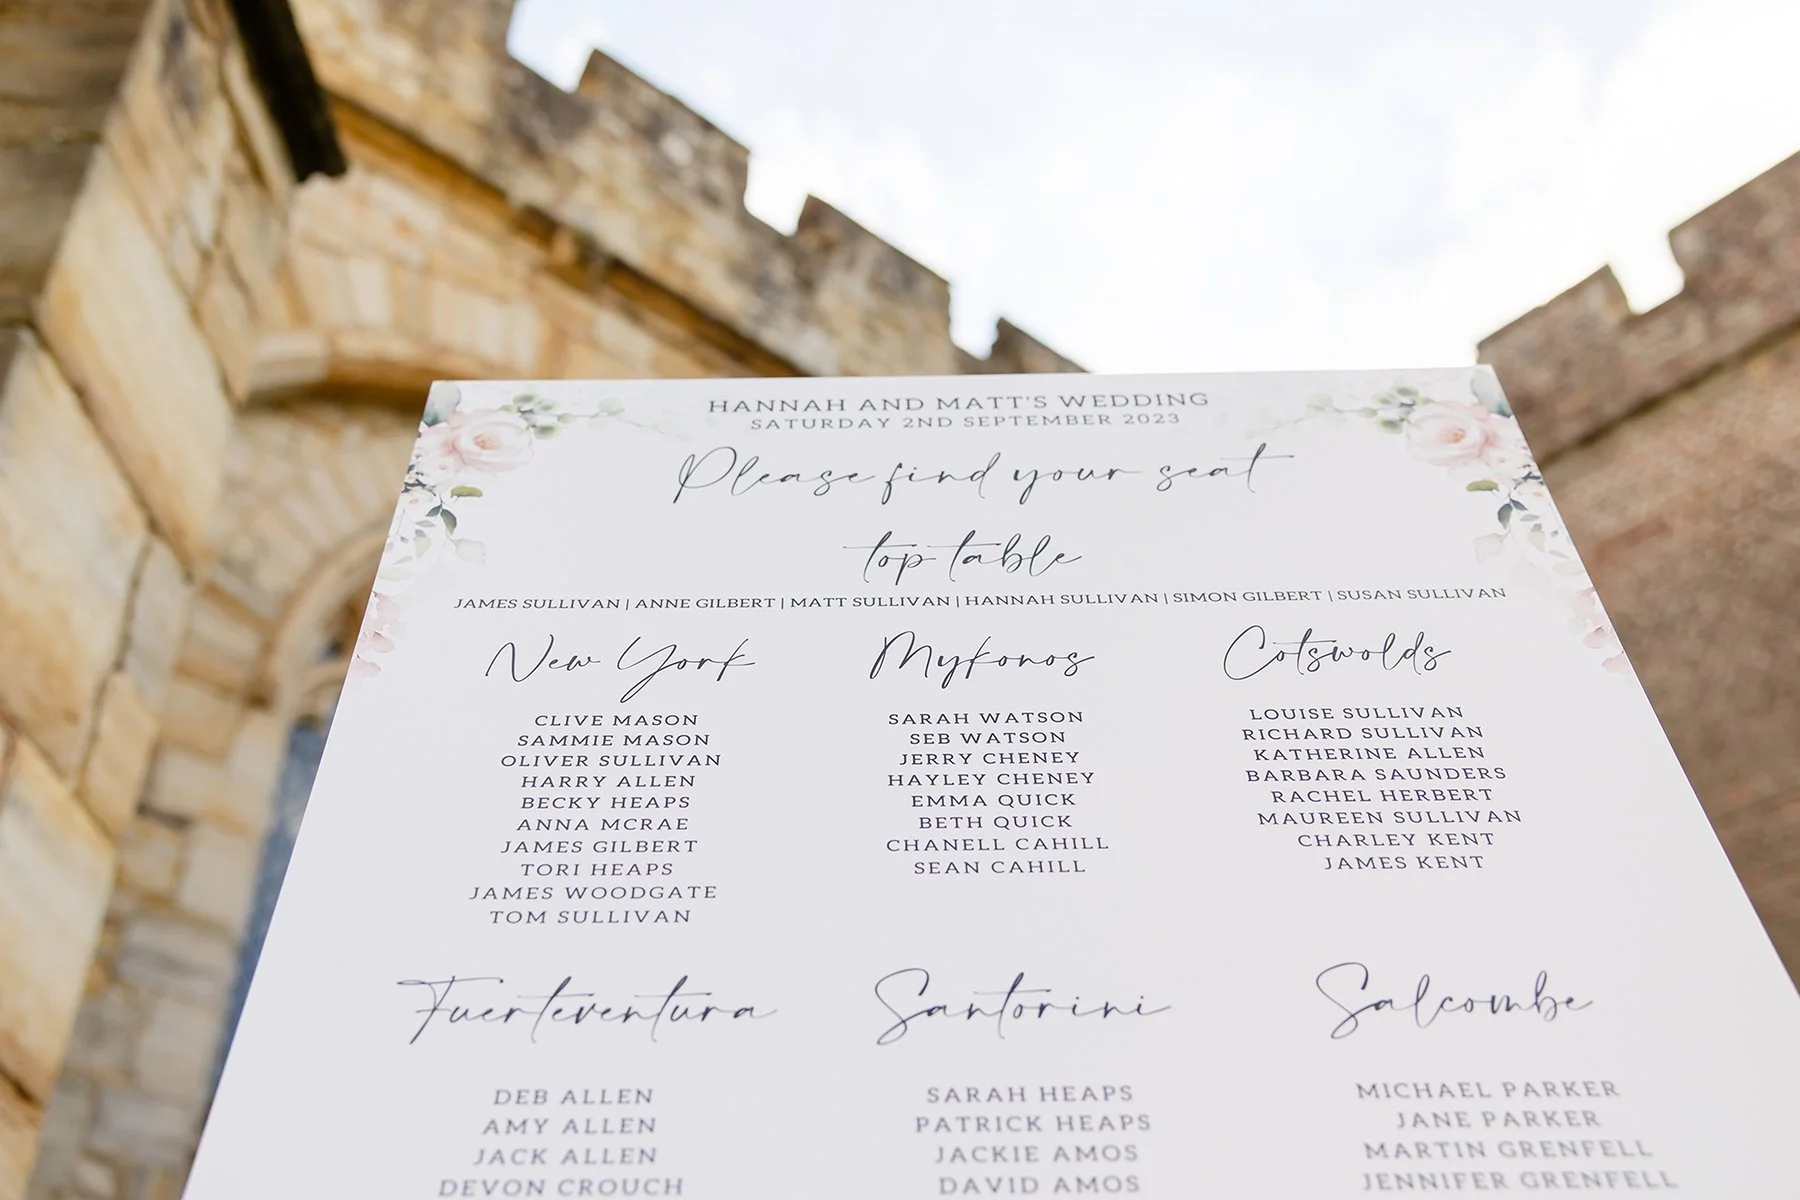 HANNAH AND MATT'S WEDDING
SATURDAY 2ND SEPTEMBER 2023
Please find your seat
top table
JAMES SULLIVAN | ANNE GILBERT | MATT SULLIVAN | HANNAH SULLIVAN | SIMON GILBERT | SUSAN SULLIVAN
New York
CLIVE MASON
SAMMIE MASON
OLIVER SULLIVAN
HARRY ALLEN
BECKY HEAPS
ANNA MCRAE
JAMES GILBERT
TORI HEAPS
JAMES WOODGATE
TOM SULLIVAN
Mykonos
SARAH WATSON
SEB WATSON
JERRY CHENEY
HAYLEY CHENEY
EMMA QUICK
BETH QUICK
CHANELL CAHILL
SEAN CAHILL
Cotswolds
LOUISE SULLIVAN
RICHARD SULLIVAN
KATHERINE ALLEN
BARBARA SAUNDERS
RACHEL HERBERT
MAUREEN SULLIVAN
CHARLEY KENT
JAMES KENT
Fuerteventura
DEB ALLEN
AMY ALLEN
JACK ALLEN
DEVON CROUCH
Santorini
SARAH HEAPS
PATRICK HEAPS
JACKIE AMOS
DAVID AMOS
Salcombe
MICHAEL PARKER
JANE PARKER
MARTIN GRENFELL
JENNIFER GRENFELL